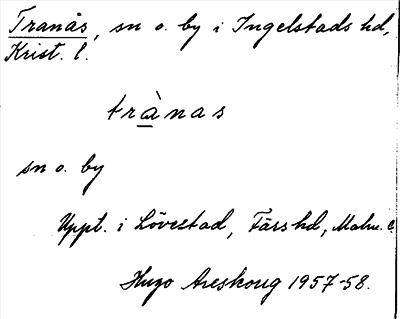 Tranås, sn o. by i Ingelstads hd,
Krist. l.
trànas
sn o. by
Uppt. i Lövestad, Färs hd, Malm. l.
Hugo Areskoug 1957-58.